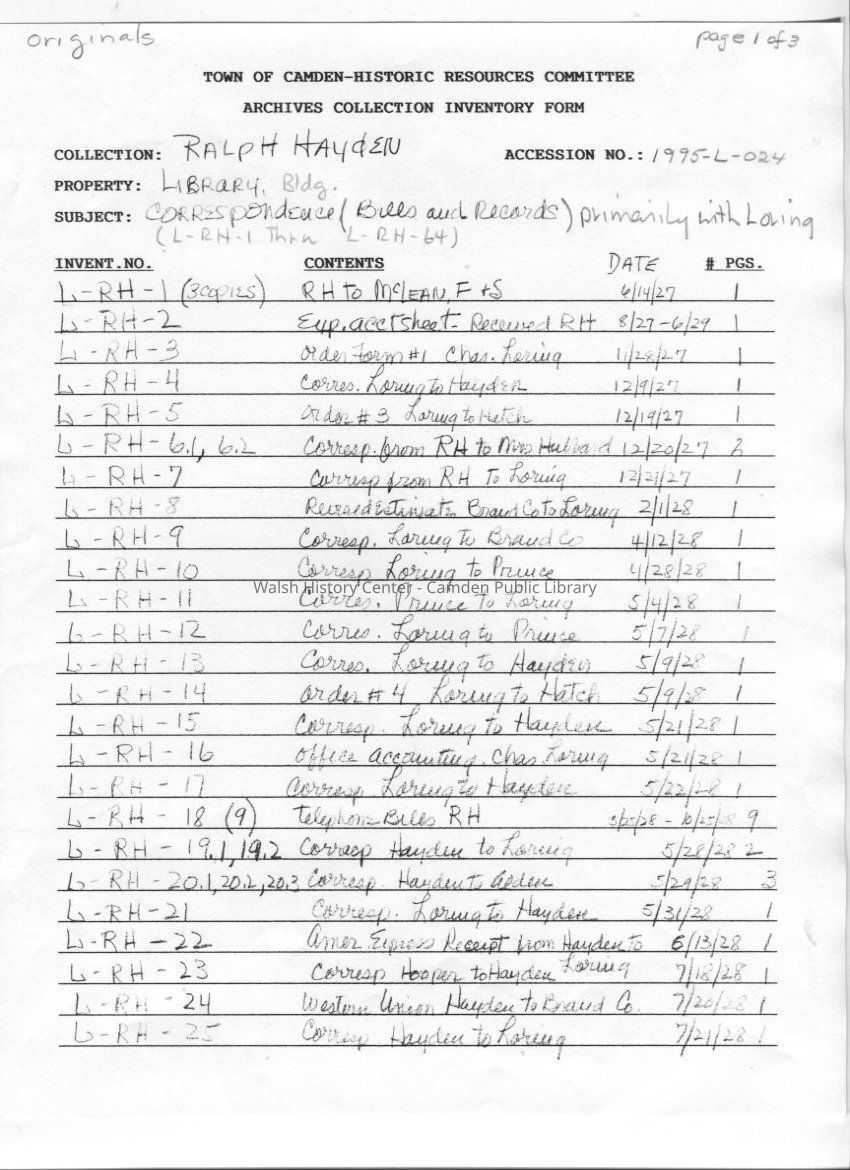 originals
page 1 of 3
TOWN OF CAMDEN-HISTORIC RESOURCES COMMITTEE
ARCHIVES COLLECTION INVENTORY FORM
COLLECTION: RALPH HAYdEN ACCESSION NO.: 1995-L-024
PROPERTY: LIBRARY, Bldg.
SUBJECT: CORRESpondence (Bills and Records) primarily with Loring
(L-RH-1 Thru L-RH-64)
INVENT.NO. CONTENTS DATE # PGS.
L-RH-1 (3 copies) RH to McLEAN, F+S 6/14/27 1
L-RH-2 Exp. acct sheet - Received RH 8/27-6/29 1
L-RH-3 Order Form #1 Chas. Loring 11/28/27 1
L-RH-4 Corres. Loring to Hayden 12/9/27 1
L-RH-5 Order #3 Loring to Hatch 12/19/27 1
L-RH-6.1, 6.2 Corresp. from RH to Mrs Hubbard 12/20/27 2
L-RH-7 Corresp from RH To Loring 12/21/27 1
L-RH-8 Revised Estimate Braud Co to Loring 2/1/28 1
L-RH-9 Corresp. Loring to Braud Co 4/12/28 1
L-RH-10 Corresp Loring to Prince 4/28/28 1
Walsh History Center - Camden Public Library
L-RH-11 Corres. Prince to Loring 5/4/28 1
L-RH-12 Corres. Loring to Prince 5/7/28 1
L-RH-13 Corres. Loring to Hayden 5/9/28 1
L-RH-14 Order #4 Loring to Hatch 5/9/28 1
L-RH-15 Corresp. Loring to Hayden 5/21/28 1
L-RH-16 Office accounting. Chas Loring 5/21/28 1
L-RH-17 Corresp Loring to Hayden 5/22/28 1
L-RH-18 (9) Telephone Bills RH 5/25/28 - 10/25/28 9
L-RH-19.1, 19.2 Corresp Hayden to Loring 5/28/28 2
L-RH-20.1, 20.2, 20.3 Corresp. Hayden to Alden 5/29/28 3
L-RH-21 Corresp. Loring to Hayden 5/31/28 1
L-RH-22 Amer. Express Receipt from Hayden to Loring 6/13/28 1
L-RH-23 Corresp Hooper to Hayden 7/18/28 1
L-RH-24 Western Union Hayden to Braud Co. 7/20/28 1
L-RH-25 Corresp Hayden to Loring 7/21/28 1